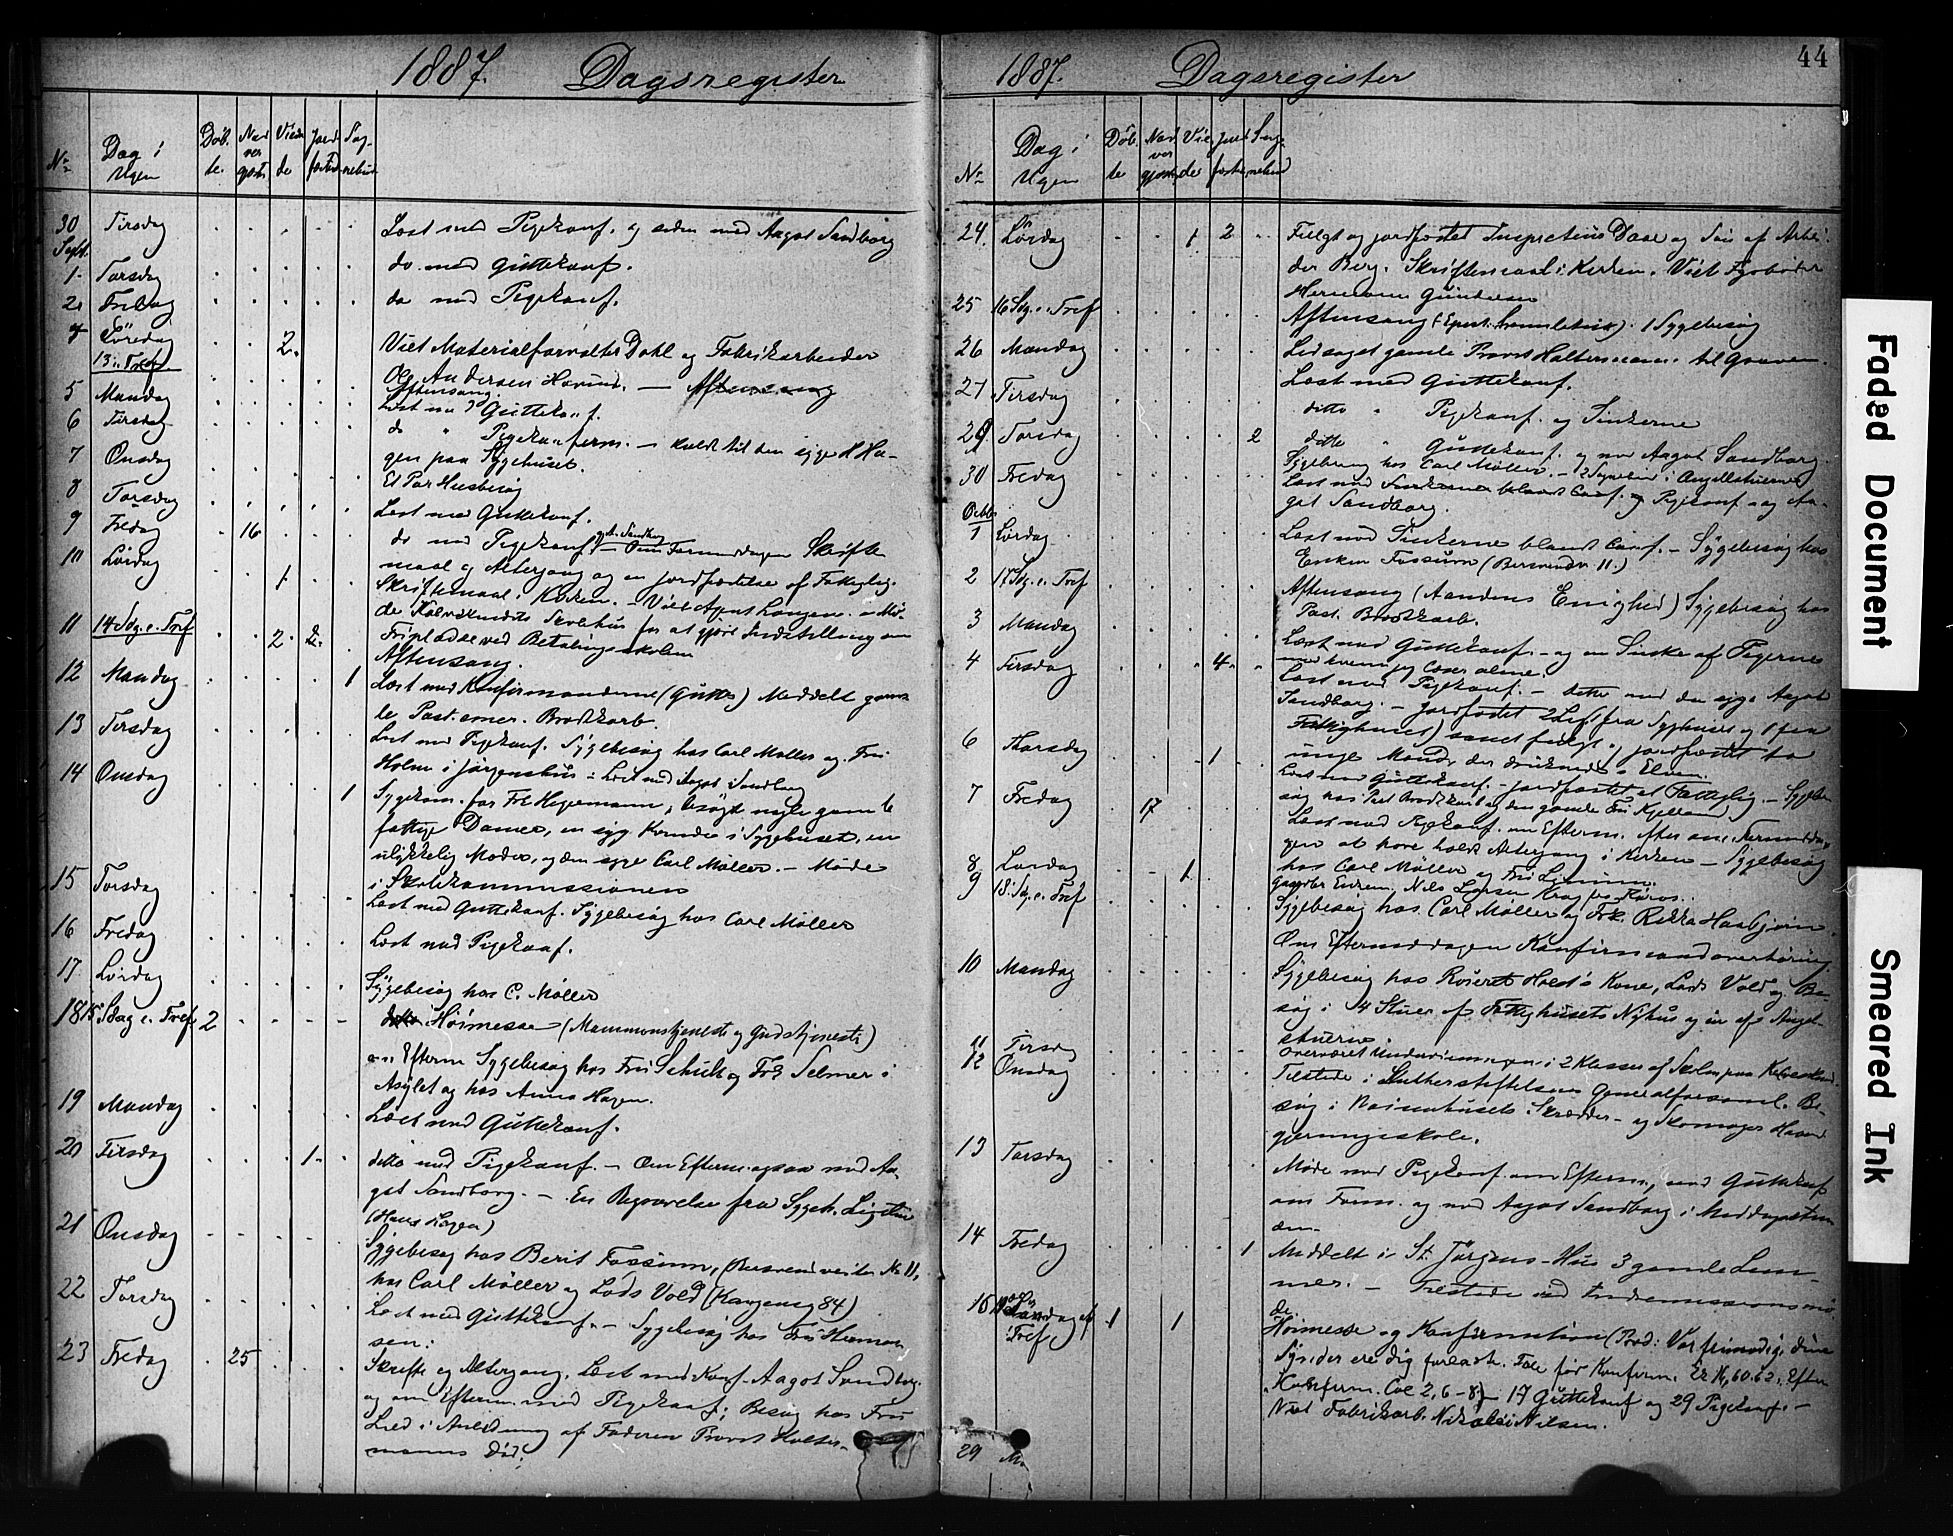 1887. Dagsregister
No Dag i Ugen Döbte. Nadvergjæste Viede Jordfæstede Sognebud
30 Tirsdag Læst med Pigekonf. og siden med Aagot Sandborg
Sept.
1. Torsdag do. med Guttekonf.
2. Fredag do med Pigekonf.
Löredag 2. Viet Materialforvalter Dahl og Fabrikarbeider
13. e. Tref Ole Andersen Havnes. — Aftensang
Aftensang.
5 Mandag Læst med Guttekonf.
6 Tirsdag do " Pigekonferm. — kaldt til den syge H Ha-
7 Onsdag gen paa Sygehuset.
8 Torsdag Et Par Husbesøg
9 Fredag 16 Læst med Guttekonf.
10 Lördag 1 do med Pigekonf. — Om Formiddagen Skrifte
maal og Altergang og en jordfæstelse af Fattiglig.
Skriftemaal i Kirken. — Viet Agent Langene. — Mö-
de Kalvskindets Skolehus for at gjöre Indstilling om
11 14 Sdg. e. Tref 2. 2. Fripladse ved Betalingsskolen
Aftensang.
12 Mandag 1 Læst med Konfirmanderne (Gutter) Meddelt gam-
le Past. emer. Brodtkorb.
13 Tirsdag Læst med Pigekonf. Sygebesøg hos Carl Møller og Fru
Holm i Jørgenshus — Læst med Aagot Sandborg
14 Onsdag 1 Sygekom. for Frk Hegemann; besögt nogle gamle
fattige Damer, en syg Kvinde i Sygehuset, en
ulykkelig Moder, og den syge Carl Møller. — Møde
i Skolekommissionen
15 Torsdag Læst med Guttekonf. Sygebesøg hos Carl Møller
16 Fredag Læst med Pigekonf.
17 Lördag Sygebesøg hos C. Møller
18 15 Sdag e. Tref 2 Höimesse (Mammonstjeneste og Gudstjeneste)
om Efterm Sygebesøg hos Fru Schult og Frk Selmer i
Asylet og hos Anna Hagen.
19 Mandag Læst med Guttekonf.
20 Tirsdag 1. ditto med Pigekonf. — Om Efterm. ogsaa med Aa-
got Sandborg. — En Begravelse fra Sygeh. Ligstue
(Hans Hagen)
21 Onsdag Sygebesøg hos Berit Fossum, (Bersvendveiten No 11,
hos Carl Møller og Lods Vold (Kongensg 84)
22 Torsdag Læst med Guttekonf. — Sygebesøg hos Fru Herman-
sen.
23 Fredag 25 Skrifte og Altergang. Læst med Konf. Aagot Sandborg.
og om Efterm. med Pigekonf; Besøg hos Fru
Lied i Anledning af Faderen Provst Holter-
manns Död.
44
1887. Dagsregister
No Dag i Ugen Döbte Nadvergjæste Viede Jordfæste Sognebud
24. Lördag 1 2 Fulgt og jordfæstet Inspecteur Daae og Søn af Arbei-
der Berg. Skriftemaal i Kirken. Viet Fyrbøder
Hermann Gundersen
25 16 Sdg. e. Tref Aftensang 1 Sygebesøg
26 Mandag Ledsaget gamle Provst Holtermann til Graven.
27 Tirsdag Læst med Guttekonf.
ditto " Pigekonf. og Sinkerne
29. Torsdag 2 ditto " Guttekonf. og med Aagot Sandborg.
30 Fredag Sygebesøg hos Carl Møller. —
Læst med Sinkerne blandt Conf. og Pigekonf. og Aa-
got Sandborg.
Octbr
1 Lördag Læst med Sinkerne blandt Conf. — Sygebesøg hos
Enken Fossum (Bersvendv. 11.)
2 17 Sdg. e. Tref Aftensang (Aandens Enighed) Sygebesøg hos
Past. Brodtkorb.
3 Mandag Læst med Guttekonf. — og en Sinke af Pigerne
med hvem jeg læser alene.
4 Tirsdag 4 Læst med Pigekonf. — ditto med den syge Aagot
Sandborg. — Jordfæstet 2 Lig (1 fra Sygehuset og 1 fra
Fattighuset) samt fulgt og jordfæstet to
unge Mænd, der druknede i Elven.
6 Thorsdag 1 Læst med Guttekonf. — Jordfæstet et Fattiglig. — Sygebe-
søg hos Past Brodtkorb og den gamle Fru Kjelland
7 Fredag 17 Læst med Pigekonf. om Efterm. efter om Formidda-
gen at have holdt Altergang i Kirken — Sygebesøg
hos Carl Møller og Fru Linum.
8 Lördag 1 Enkem. Nils Larsen Krag fra Röros.
9 18. Sdg. e. Tref Sygebesøg hos Carl Møller og Frk. Rikka Hasbjørn.
Om Eftermiddagen Konfirmandoverhøring
10 Mandag Sygebesøg hos Hold's Kone, Lods Vold og Be-
søg i 4 Stuer af Fattighusets Nyhus og en af Angel-
stuerne.
11 Tirsdg Overværet Undervisningen i 2 Klasser af Skolen paa Kalvskindet.
12 Onsdag Tilstede i Lutherstiftelsens Generalforsaml. Be-
søg i Waisenhusets Skrædder- og Skomager Haand
gjerningsskole.
13 Torsdag Møde med Pigekonf. om Efterm., med Guttekonf
om Form. og med Aagot Sandborg i Middagstim
en.
14 Fredag 1 Meddelt i St. Jørgens-Hus 3 gamle Lem-
mer. — Tilstede ved Indremissionsmö
de.
16 19 Söndag ef Tref 1 1 Höimesse og Konfirmation (Præd: Vær frimodig, dine
Synder ere dig forladte. Tale før Konfirm. Ef
Konfirm. Col 2, 6-8) — 17 Guttekonf og 29 Pigekonf. —
Viet Fabrikarb. Nikolai Nilsen.
29 Ma
Faded Document
Smeared Ink